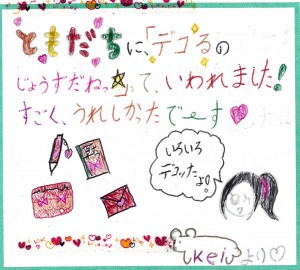 ともだちに、「デコるの
じょうずだねっ☆」って、いわれました!
すごく、うれしかったでーす♥
いろいろ
デコッたよ!!
keiより♡